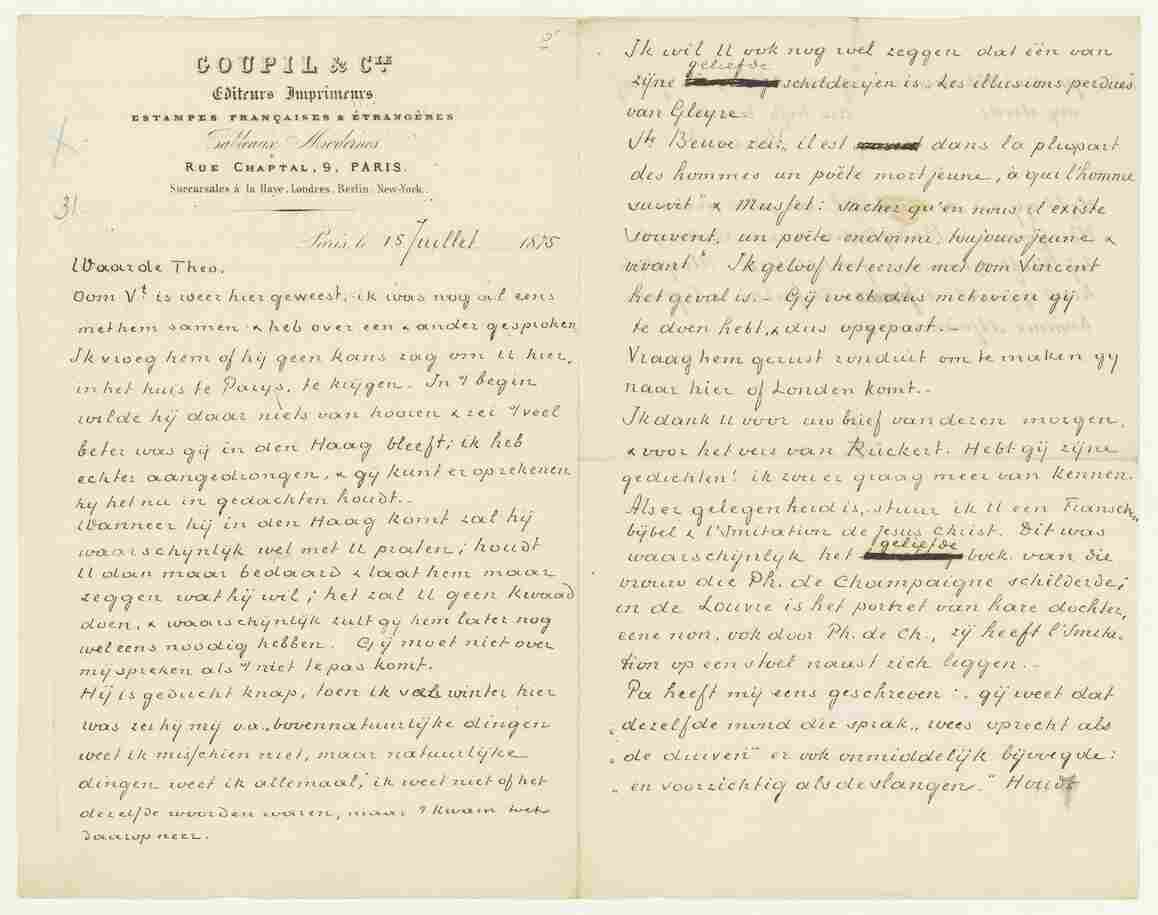 GOUPIL & CIE
Editeurs Imprimeurs
ESTAMPES FRANÇAISES & ÉTRANGÈRES
Tableaux Modernes
RUE CHAPTAL, 9, PARIS.
Succursales à la Haye, Londres, Berlin, New-York.
31
Paris, le 15 Juillet 1875
Waarde Theo.
Oom Vt is weer hier geweest, ik was nog al eens
met hem samen & heb over een & ander gesproken
Ik vroeg hem of hij geen kans zag om U hier,
in het huis te Parijs, te krijgen. In 't begin
wilde hij daar niets van hooren & zei 't veel
beter was gij in den Haag bleeft; ik heb
echter aangedrongen, & gij kunt er op rekenen
hij het nu in gedachten houdt..
Wanneer hij in den Haag komt zal hij
waarschijnlijk wel met U praten; houdt
U dan maar bedaard & laat hem maar
zeggen wat hij wil; het zal U geen kwaad
doen, & waarschijnlijk zult gij hem later nog
wel eens noodig hebben. Gij moet niet over
mij spreken als 't niet te pas komt.
Hij is geducht knap, toen ik van winter hier
was zei hij mij o.a. „bovennatuurlijke dingen
weet ik misschien niet, maar natuurlijke
dingen weet ik allemaal; ik weet niet of het
dezelfde woorden waren, maar 't kwam toch
daarop neer.
Ik wil U ook nog wel zeggen dat één van
zijne geliefde schilderijen is „Les illusions perdues
van Gleyre
Ste Beuve zei: „il est dans la plupart
des hommes un poëte mort jeune, à qui l'homme
survit" & Musset: „sachez qu'en nous il existe
souvent, un poëte endormi, toujours jeune &
vivant" Ik geloof het eerste met oom Vincent
het geval is.- Gij weet dus met wien gij
te doen hebt, & dus opgepast.-
Vraag hem gerust ronduit om te maken gij
naar hier of Londen komt.-
Ik dank U voor uw brief van dezen morgen,
& voor het vers van Rückert. Hebt gij zijne
gedichten? ik zou er graag meer van kennen.
Als er gelegenheid is, stuur ik U een Fransch
bijbel & l'Imitation de Jesus Christ. Dit was
waarschijnlijk het geliefde boek van die
vrouw die Ph. de Champaigne schilderde;
in de Louvre is het portret van hare dochter,
eene non, ook door Ph. de Ch., zij heeft l'Imita-
tion op een stoel naast zich liggen.-
Pa heeft mij eens geschreven: „gij weet dat
„dezelfde mond die sprak „wees oprecht als
„de duiven" er ook onmiddelijk bijvoegde:
„en voorzichtig als de slangen." Houdt